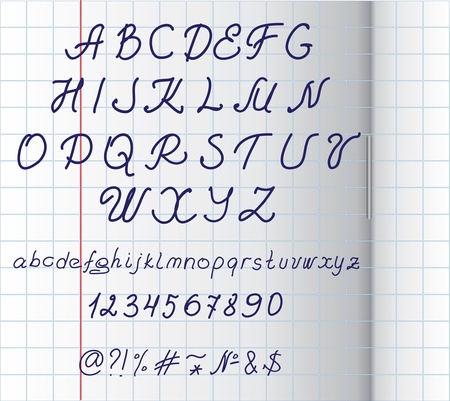 A B C D E F G
H I J K L M N
O P Q R S T U V
W X Y Z
a b c d e f g h i j k l m n o p q r s t u v w x y z
1 2 3 4 5 6 7 8 9 0
@ ? ! % # ~ * № & $